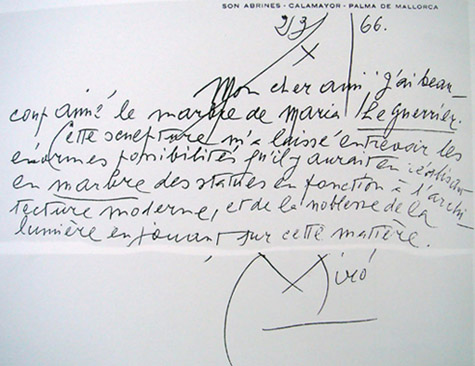 SON ABRINES - CALAMAYOR - PALMA DE MALLORCA
2/3/66.
Mon cher ami, j'ai beau-
coup aimé le marbre de Maria Le Guerrier.
Cette sculpture m'a laissé entrevoir les
énormes possibilités qu'il y aurait en
en marbre des statues en fonction à l'archi-
tecture moderne, et de la noblesse de la
lumière en jouant sur cette matière.
Miró